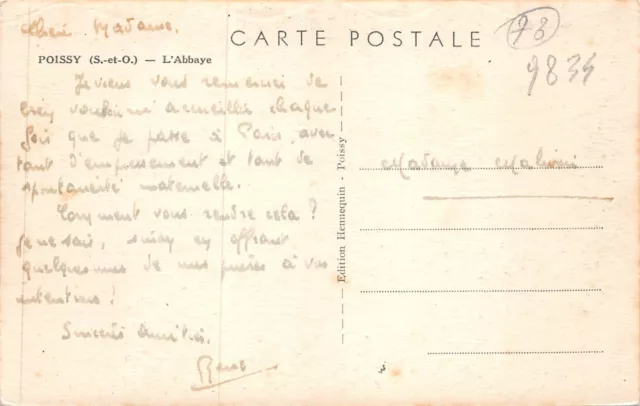 Chère Madame,
CARTE POSTALE
78
9834
POISSY (S.-et-O.) — L'Abbaye
Je viens vous remercier de
bien vouloir m'accueillir chaque
fois que je passe à Paris, avec
tant d'empressement et tant de
spontanéité maternelle.
Comment vous rendre cela ?
Je ne sais, sinon en offrant
quelques unes de mes prières à vos
intentions !
Sincères amitiés.
Edition Hennequin - Poissy
Madame